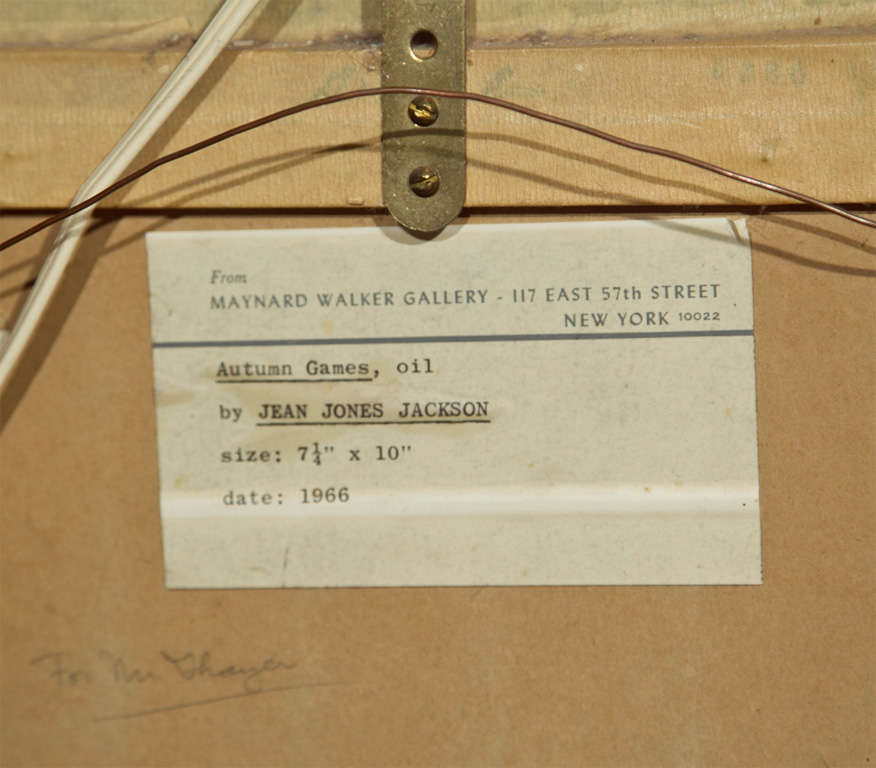 From
MAYNARD WALKER GALLERY - 117 EAST 57th STREET
NEW YORK 10022
Autumn Games, oil
by JEAN JONES JACKSON
size: 7¼" x 10"
date: 1966
For Mr Thayer